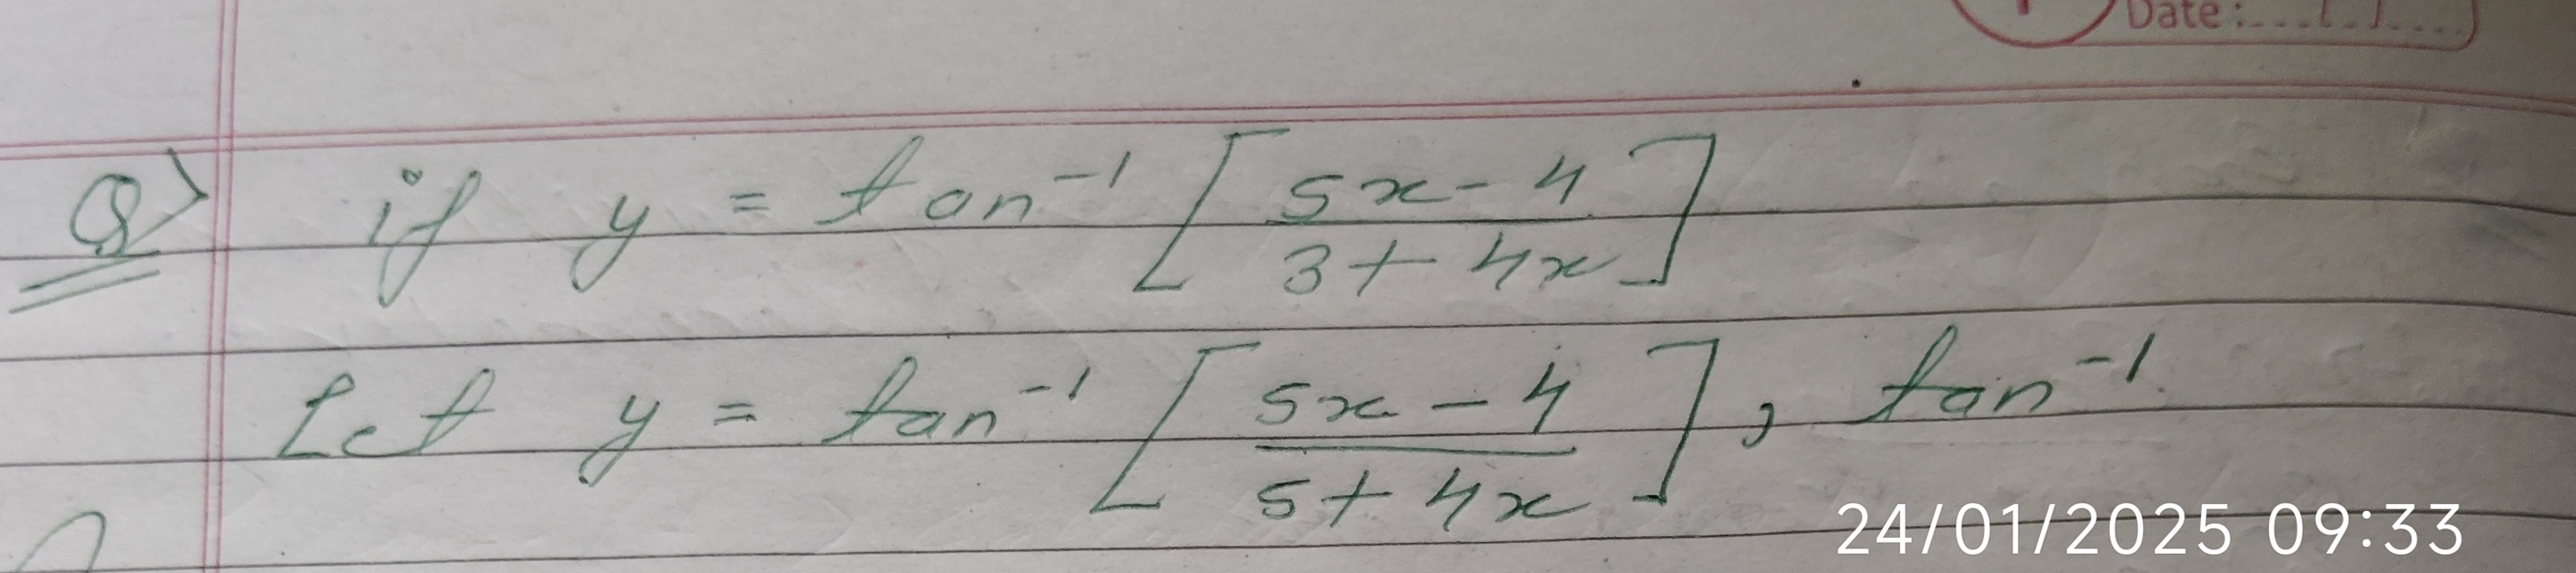 Date :....[..]....
Q> if y = tan⁻¹ [ (5x - 4) / (3 + 4x) ]
Let y = tan⁻¹ [ (5x - 4) / (5 + 4x) ], tan⁻¹
24/01/2025 09:33